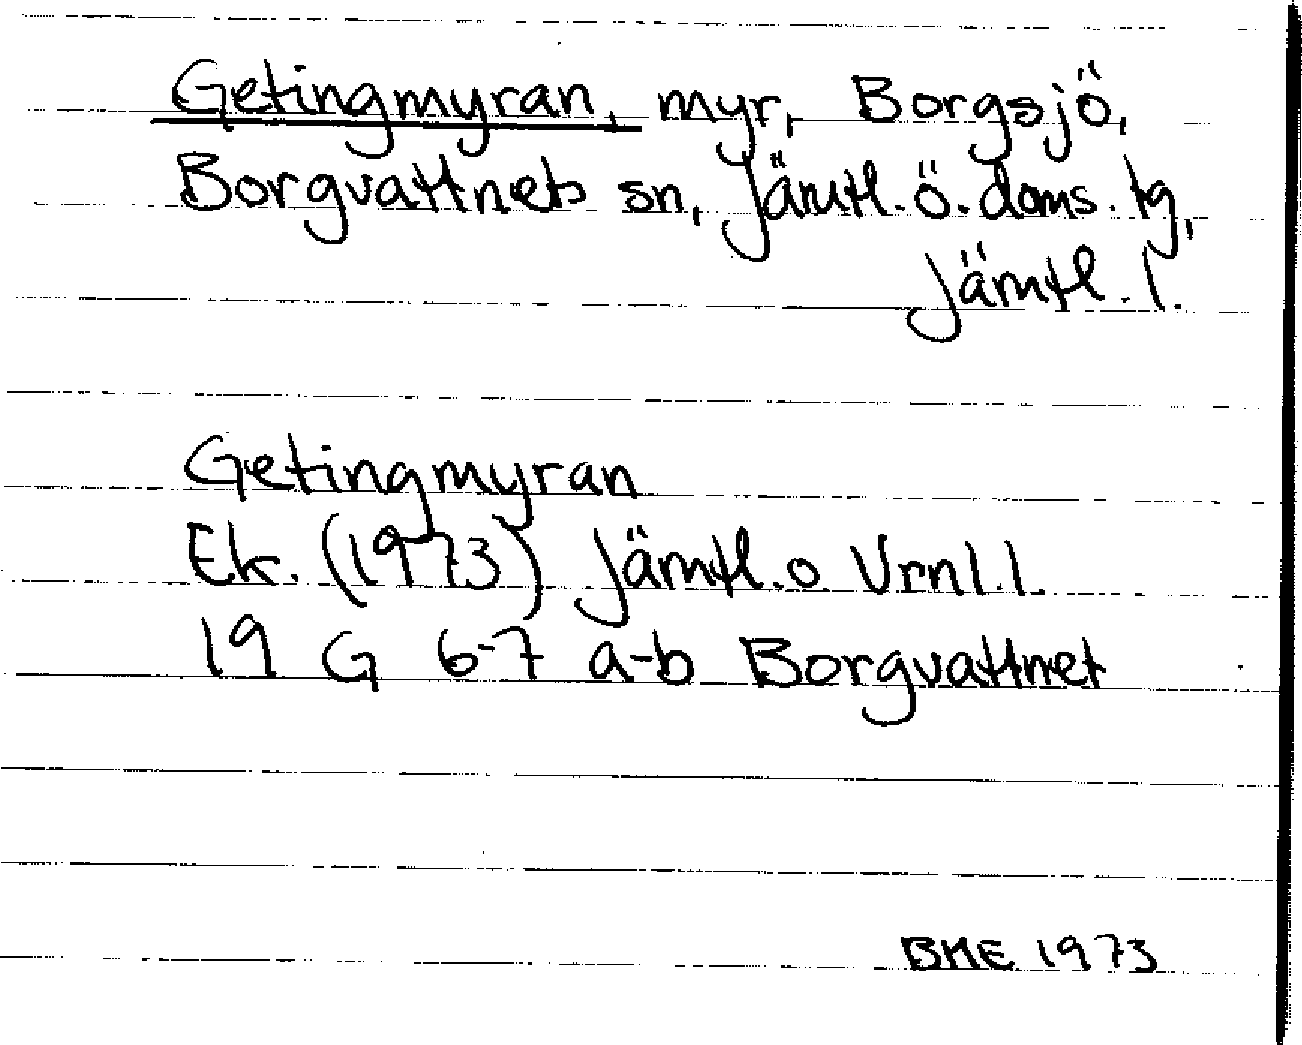 Getingmyran, myr, Borgsjö,
Borgvattnets sn, Jämtl. ö. doms. tg,
Jämtl. l.
Getingmyran
Ek. (1973) Jämtl. o Vrnl. l.
19 G 6-7 a-b Borgvattnet
BME 1973